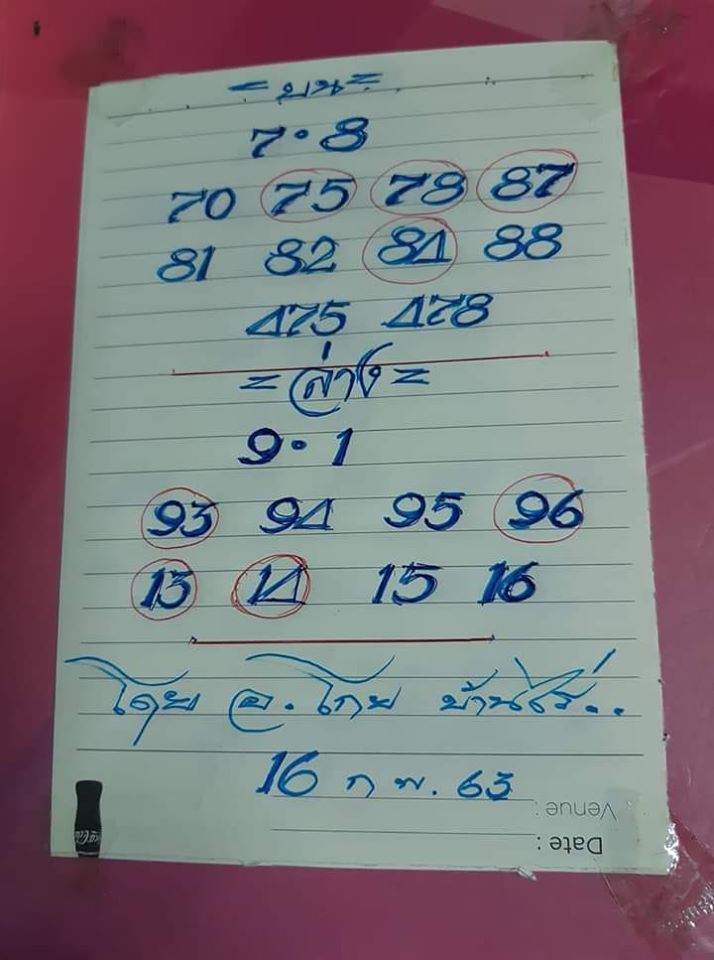 = บน =
7 • 8
70 75 78 87
81 82 84 88
475 478
= ล่าง =
9 • 1
93 94 95 96
13 14 15 16
โดย อ. โกย บ้านไร่..
16 ก พ. 63
Venue :
Date :